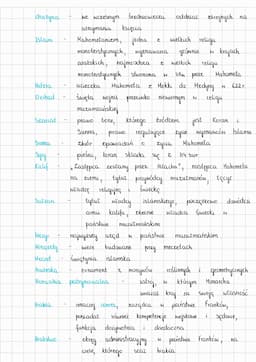 Drużyna - we wczesnym średniowieczu oddział zbrojnych na
utrzymaniu księcia
Islam - Mahometanizm, jedna z wielkich religii
monoteistycznych, wyznawana głównie w krajach
arabskich, najmłodsza z wielkich religii
monoteistycznych stworzona w VIIw. przez Mahometa.
Hidżra - ucieczka Mahometa z Mekki do Medyny w 622r.
Dżihad - święta wojna przeciwko niewiernym w religii
muzułmańskiej
Szariat - prawo boże, którego źródłem jest Koran i
Sunna, prawo regulujące życie wyznawców Islamu
Sunna - zbiór opowiadań z życia Mahometa
Sury - poetów, koran składa się z 114 sur
Kalif - "Zastępca zesłany przez Allaha", następca Mahometa
na ziemi, tytuł przywódcy muzułmanów, łączył
władzę religijną i świecką
Sułtan - tytuł władcy islamskiego, początkowo dowódca
armii kalifa, obecnie władca świecki w
państwie muzułmańskim
Wezyr - najwyższy urząd w państwie muzułmańskim
Minarety - wieże budowane przy meczetach
Meczet - świątynia islamska
Arabeska - ornament z motywów roślinnych i geometrycznych
Monarchia patrymonialna - ustrój, w którym Monarcha
uważał kraj za swoją własność
Hrabia - inaczej comes, rządca w państwie Franków,
posiadał również kompetencje wojskowe i sądowe,
funkcja dożywotnia i dziedziczna
Hrabstwo - okręg administracyjny w państwie franków, na
czele, którego stał hrabia.